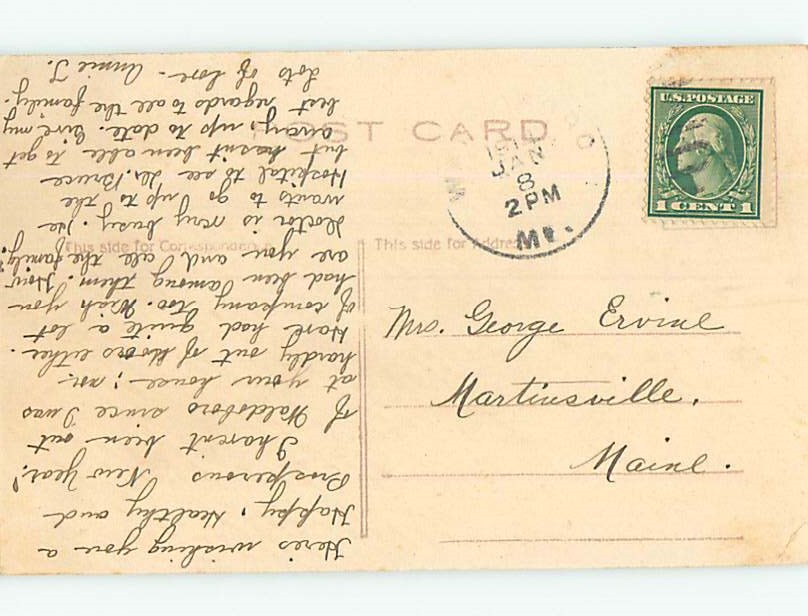 POST CARD
This side for Correspondence
This side for Address
U.S. POSTAGE
1 CENT 1
JAN
8
2 PM
ME.
Mrs. George Ervine
Martinsville,
Maine.
Here's wishing you a
Happy, Healthy and
Prosperous New Year!
I havent been out
of Waldoboro since I was
at your house; nor
hardly out of doors either.
Have had quite a lot
of company too. Wish you
had been among them. How
are you and all the family?
Doctor is very busy. He
wants to go up to the
Hospital to see Dr. Bruce
but hasn't been able to get
away, up to date. Give my
best regards to all the family.
Lots of love. Annie T.